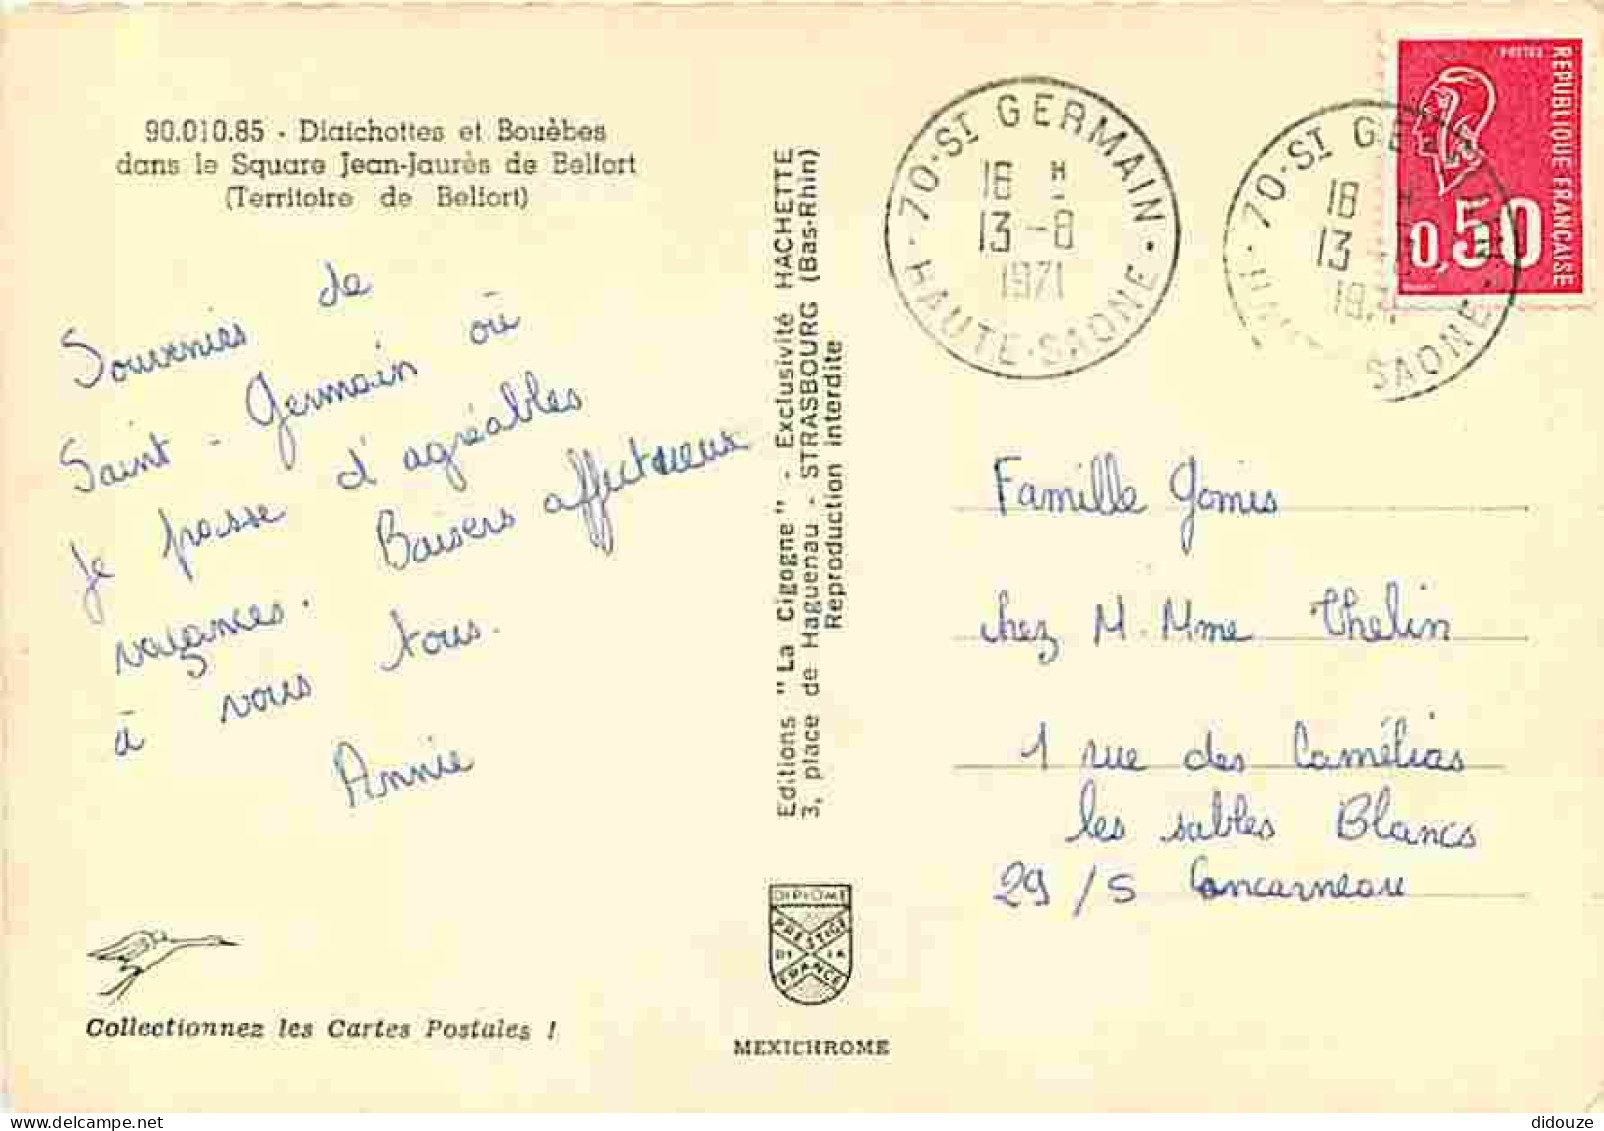 90.010.85 - Diaichottes et Bouèbes
dans le Square Jean-Jaurès de Belfort
(Territoire de Belfort)
Souvenirs de
Saint-Germain où
je passe d'agréables
vacances. Baisers affectueux
à vous tous.
Annie
Collectionnez les Cartes Postales !
Editions "La Cigogne" - Exclusivité HACHETTE
3, place de Haguenau - STRASBOURG (Bas-Rhin)
Reproduction interdite
DIPLOME
PRESTIGE
DE LA
FRANCE
MEXICHROME
70-ST GERMAIN
18 H
13-8
1971
HAUTE-SAONE
70-ST GERMAIN
18 H
13
1971
SAONE
POSTES
REPUBLIQUE FRANÇAISE
0,50
Famille Gomis
chez M. Mme Thelin
1 rue des Camélias
les sables Blancs
29/S Concarneau
didouze